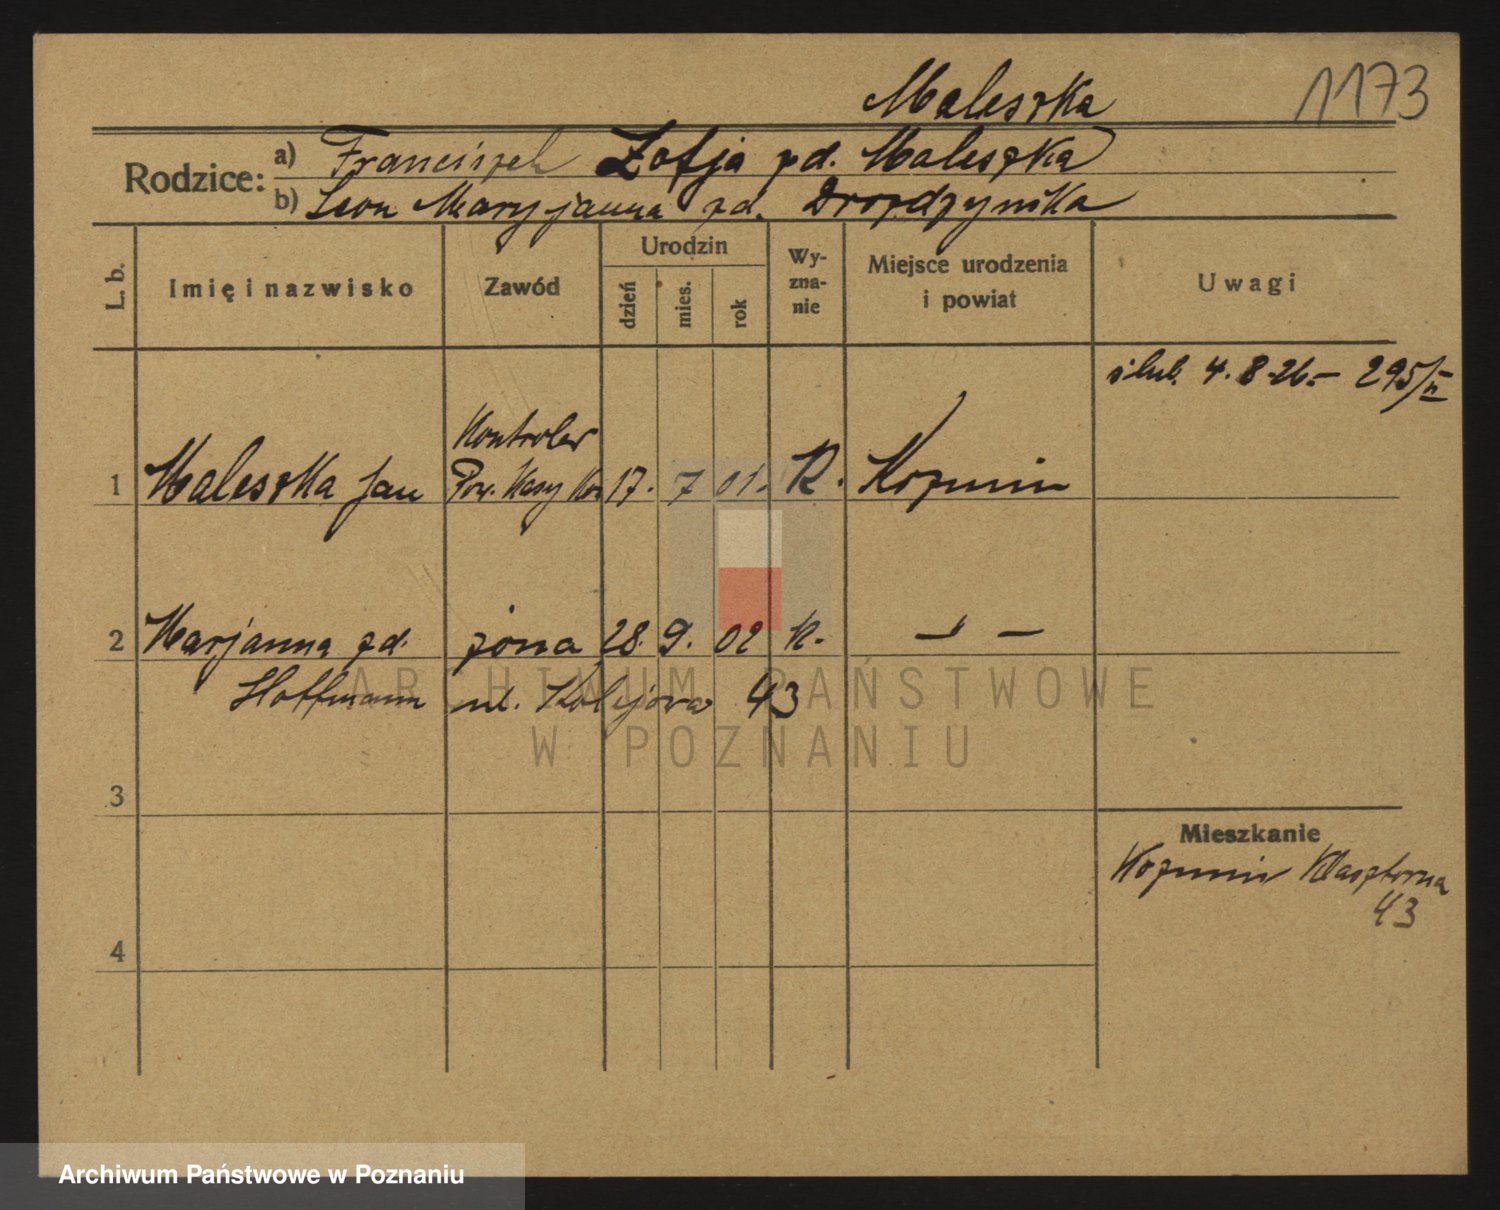 Maleszka 1173
Rodzice: a) Franciszek Zofja zd. Maleszka
b) Leon Maryjanna zd. Drozdzynska
L. b. Imię i nazwisko Zawód Urodzin dzień mies. rok Wy-zna-nie Miejsce urodzenia i powiat Uwagi
ślub. 4. 8 26. – 295/II
Kontroler
1 Maleszka Jan Pow. Kasy Kom 17. 7 01. R. Kozmin
2 Marjanna zd. żona 28. 9. 02 R. – " –
Hoffmann ul. Kolejowa 43
ARCHIWUM PAŃSTWOWE
W POZNANIU
3
Mieszkanie
Kozmin Klasztorna
43
4
Archiwum Państwowe w Poznaniu